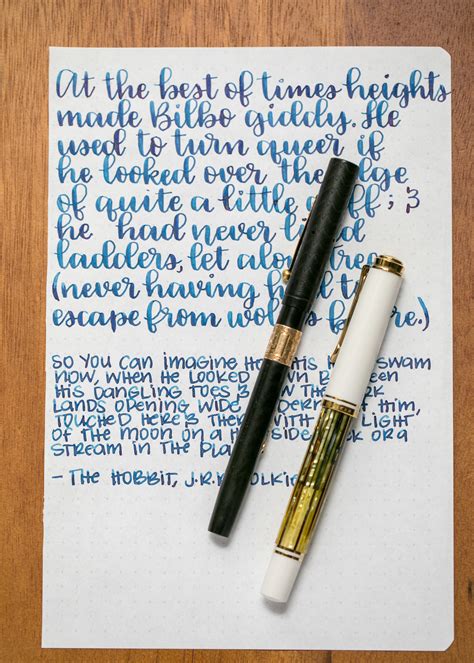 At the best of times heights
made Bilbo giddy. He
used to turn queer if
he looked over the edge
of quite a little ; &
he had never
ladders, let
(never having
escape from
SO YOU CAN IMAGINE HIS SWAM
NOW, WHEN HE LOOKED DOWN BETWEEN
HIS DANGLING TOES & THE
LANDS OPENING WIDE HIM,
TOUCHED HERE & THERE WITH LIGHT
OF THE MOON ON A OR A
STREAM IN THE
– THE HOBBIT, J.R.R. TOLKIEN